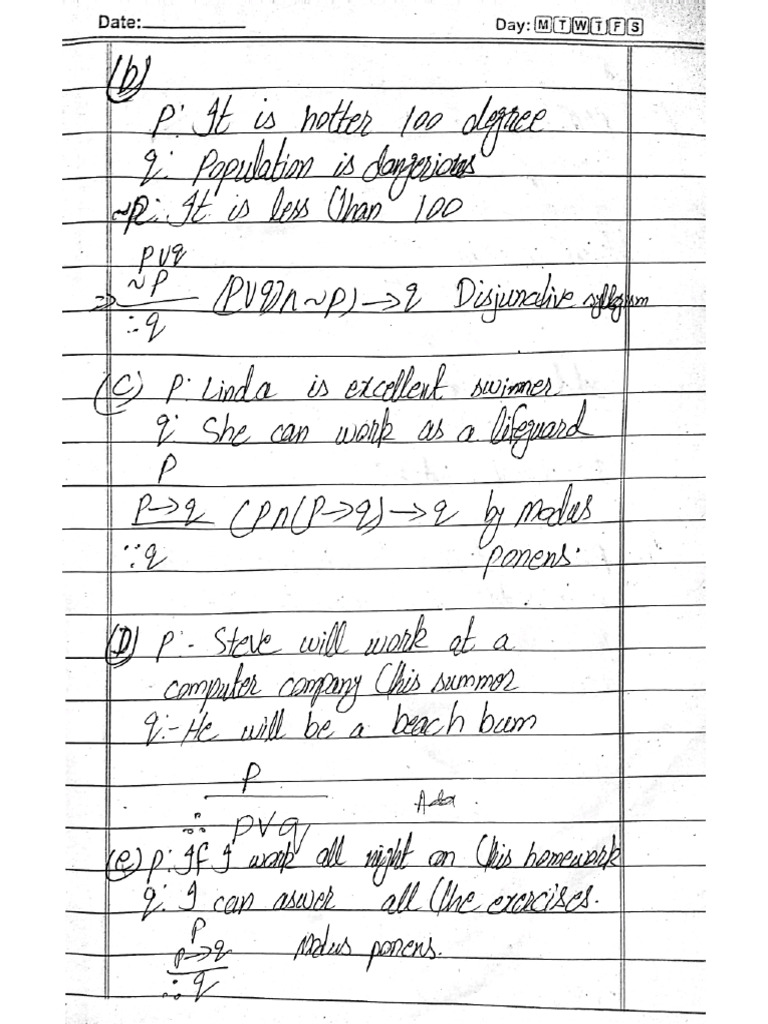 Date:
Day: M T W T F S
(b)
P: It is hotter 100 degree
q: Population is dangerious
~P: It is less than 100
P∨q
~P
⇒ (P∨q)∧~P) → q Disjunctive syllogism
∴ q
(C) P: Linda is excellent swimmer
q: She can work as a lifeguard
P
P→q (P∧(P→q) → q by modus
∵ q ponens.
(D) P:- Steve will work at a
computer company this summor
q:- He will be a beach bum
P
∴ P∨q
(e) P: If I work all night on this homework
q: I can aswer all the exercises.
P
P→q Modus ponens.
∴ q